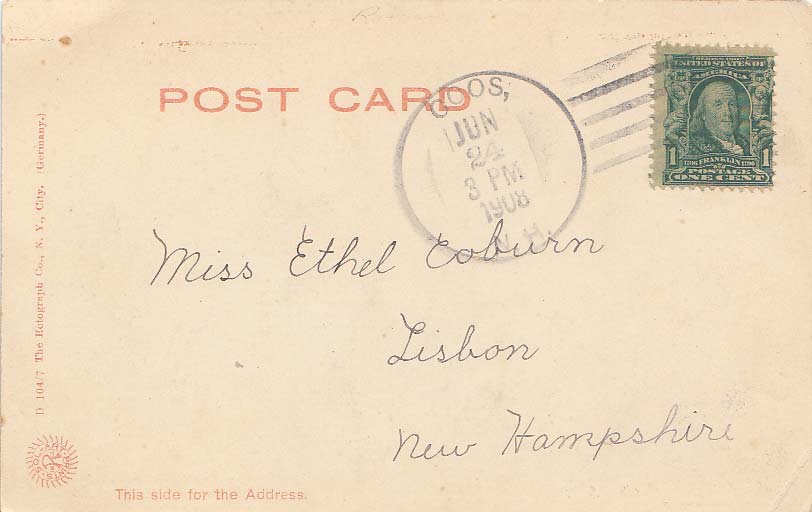 POST CARD
COOS,
JUN
24
3 PM
1908
N.H.
SERIES 1902
UNITED STATES OF
AMERICA
1706 FRANKLIN 1790
1 POSTAGE 1
ONE CENT
Miss Ethel Coburn
Lisbon
New Hampshire
D 104/7 The Rotograph Co., N. Y., City. (Germany.)
This side for the Address.